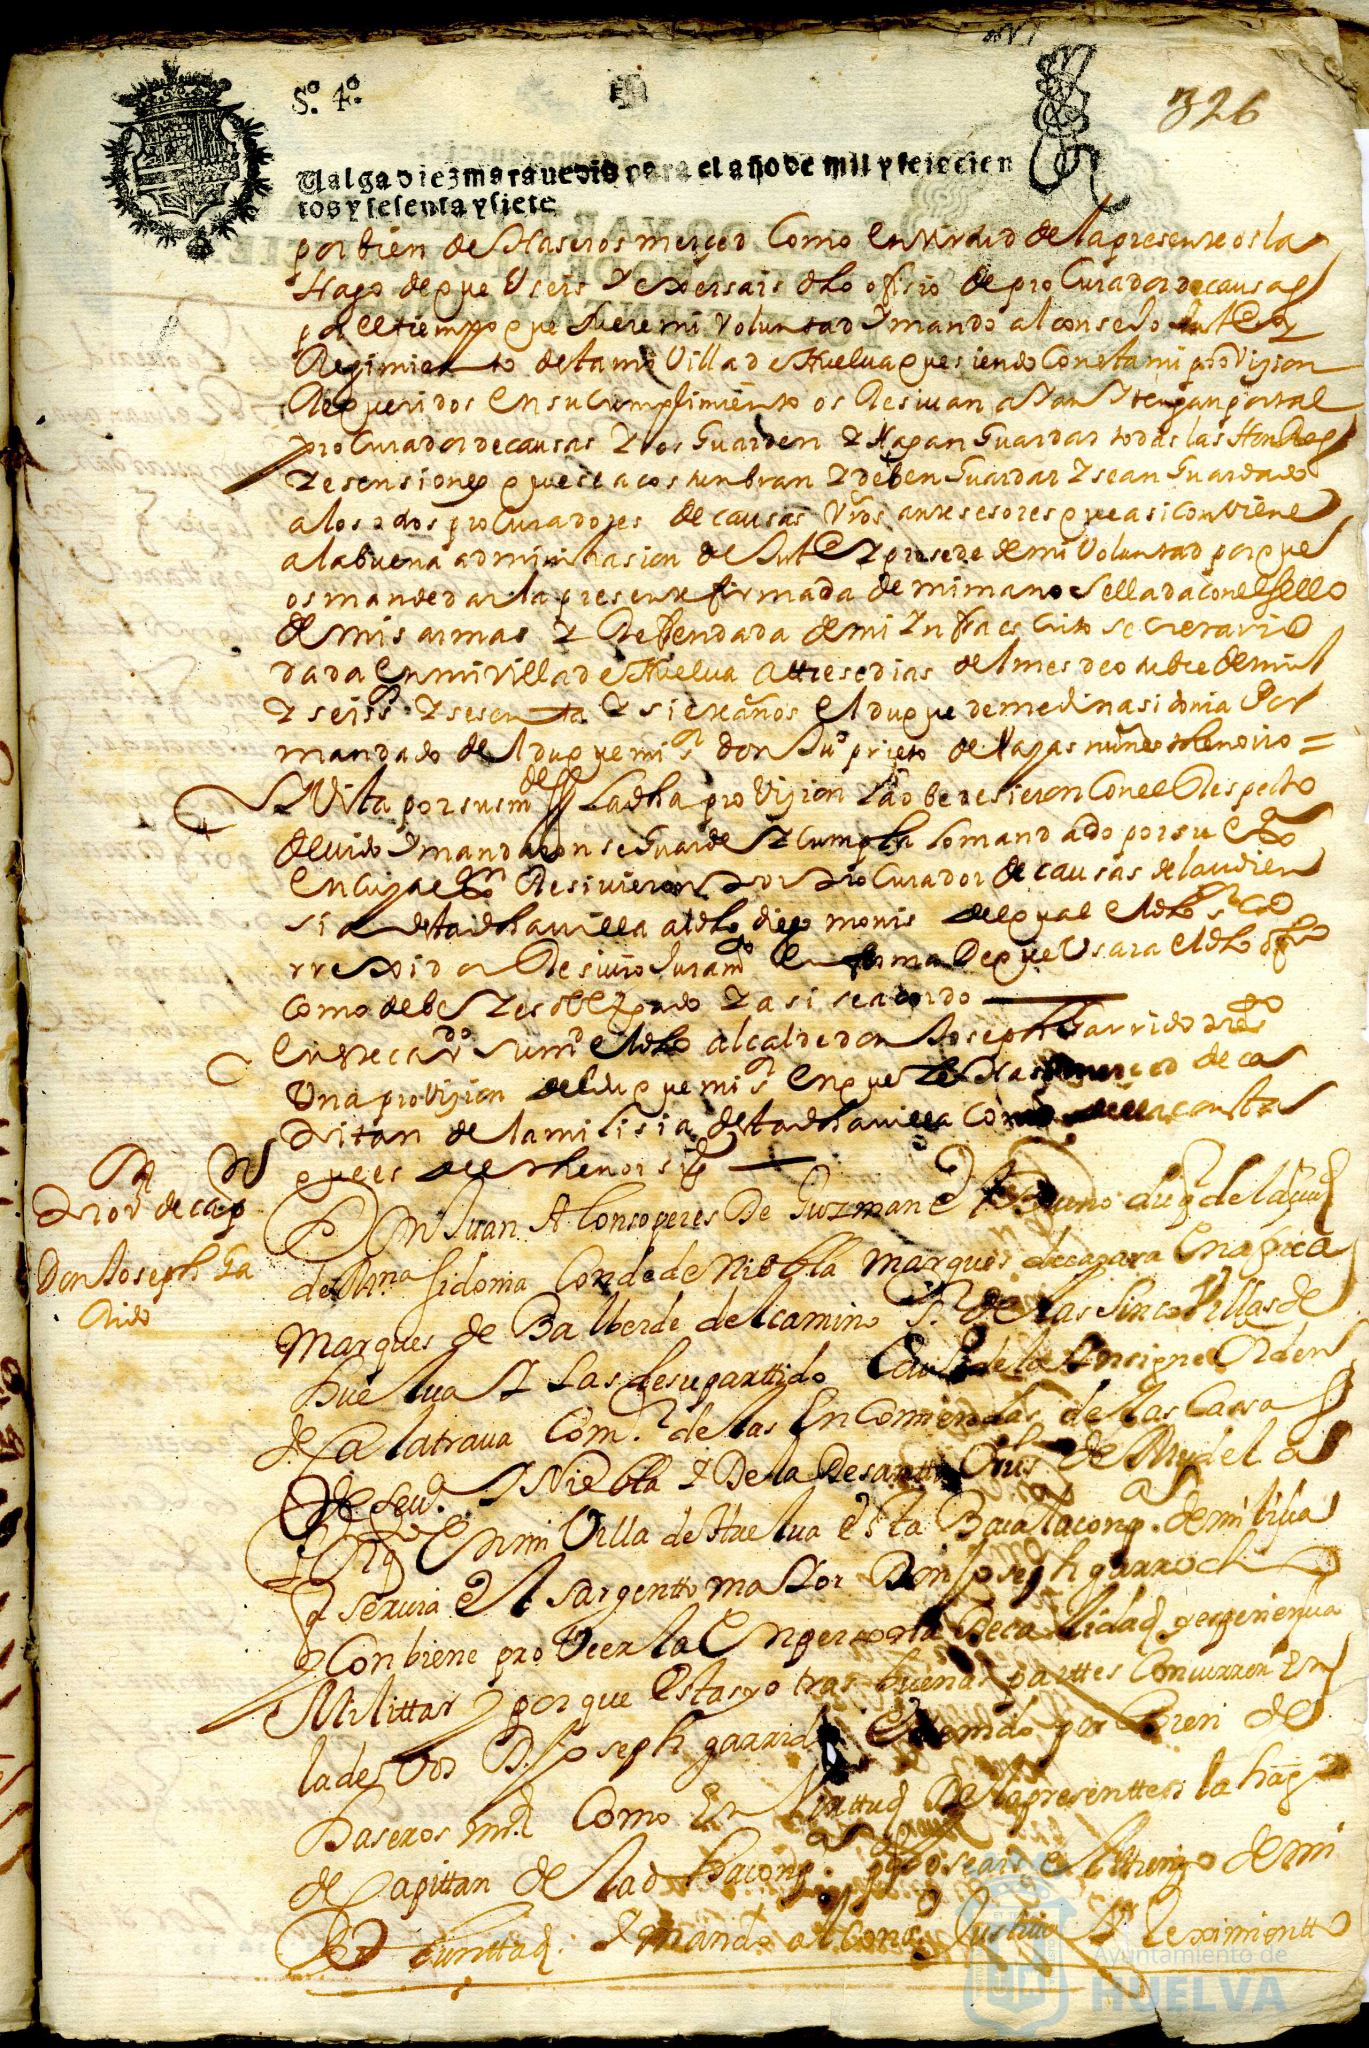 326
S.º 4.º
Valga diez maravedis para el año de mil y seiscien
tos y sesenta y siete
por bien de Haseros merced Como en virtud de la presente os la
Hago de que Useis y exersais dho ofisio de pro Curador de causas
por el tiempo que fuere mi Voluntad y mando al consejo Just.ª y
Regimiento desta mi Villa de Huelva que siendo Con esta mi provission
Requeridos en su cumplimiento os Resivan aian y tengan por tal
pro Curador de causas y os Guarden y Hagan Guardar todas las Honrras
y esensiones que se acostunbran y deben Guardar y sean Guardado
a los dhos pro Curadores de causas vros antesesores que asi conviene
a la buena administrasion de Just.ª y prosede de mi Voluntad por que
os mande dar la presente firmada de mi mano Sellada con el sello
de mis armas y Refrendada de mi Infraescrito secretario
dada en mi villa de Huelva a trese dias del mes de otubre de mil
y seisº y sesenta y siete años el duque de medina sidonia Por
mandado del duque mi s.r don Juº prieto de Hayas nuñes thenorio =
Vista por sus mdes La dha provission La obedesieron Con el Respecto
devido y mandaron se Guarde y cumpla lo mandado por su Exª
En cuya exon Resivieron Por Pro Curador de causas de la audien
sia desta dha villa al dho diego monis del qual el dho s.r Co
rrexidor Resivio Juramto En forma De que Usara el dho ofisio
como debe y es obligado y asi se acordo
En este cavdo su md el dho alcalde don Joseph Garrido preso
Una provission del duque mi s.r en que le Hase merced de ca
pitan de la milisia desta dha villa Como della consta
que es del thenor sigte
Pror de cap
Don Joseph Ga
Rido
Don Juan Alonso peres De Guzman el Bueno duq de la ciud
de Mna sidonia Conde de Niebla Marques de cazaza En africa
Marques de Balberde del camino S.r de las Sinco Villas de
Huelva y Las de su parttido Cavº de la Ynsigne Orden
de Calatrava Com.r de las En Comiendas de las Cassas
De Sevª y Niebla y De la De santta Crus De Mudela
Por qto En mi Villa de Huelva esta Baca la conpª de milicia
q servia el sargentto maior Don Joseph garrocho
y Conbiene pro Veerla En persona De calidad y esperiençia
Milittar y por que Estas y otras buenas parttes Concurren En
la de Vos D. Joseph garrido E tenido por Bien de
Haseros md Como En Virttud De la presentte os la hago
de Capittan de la dha conpª pª q lo seais el tienpo de mi
Boluntad y mando al Consº Justicia y Reximientto
Ayuntamiento de
HUELVA